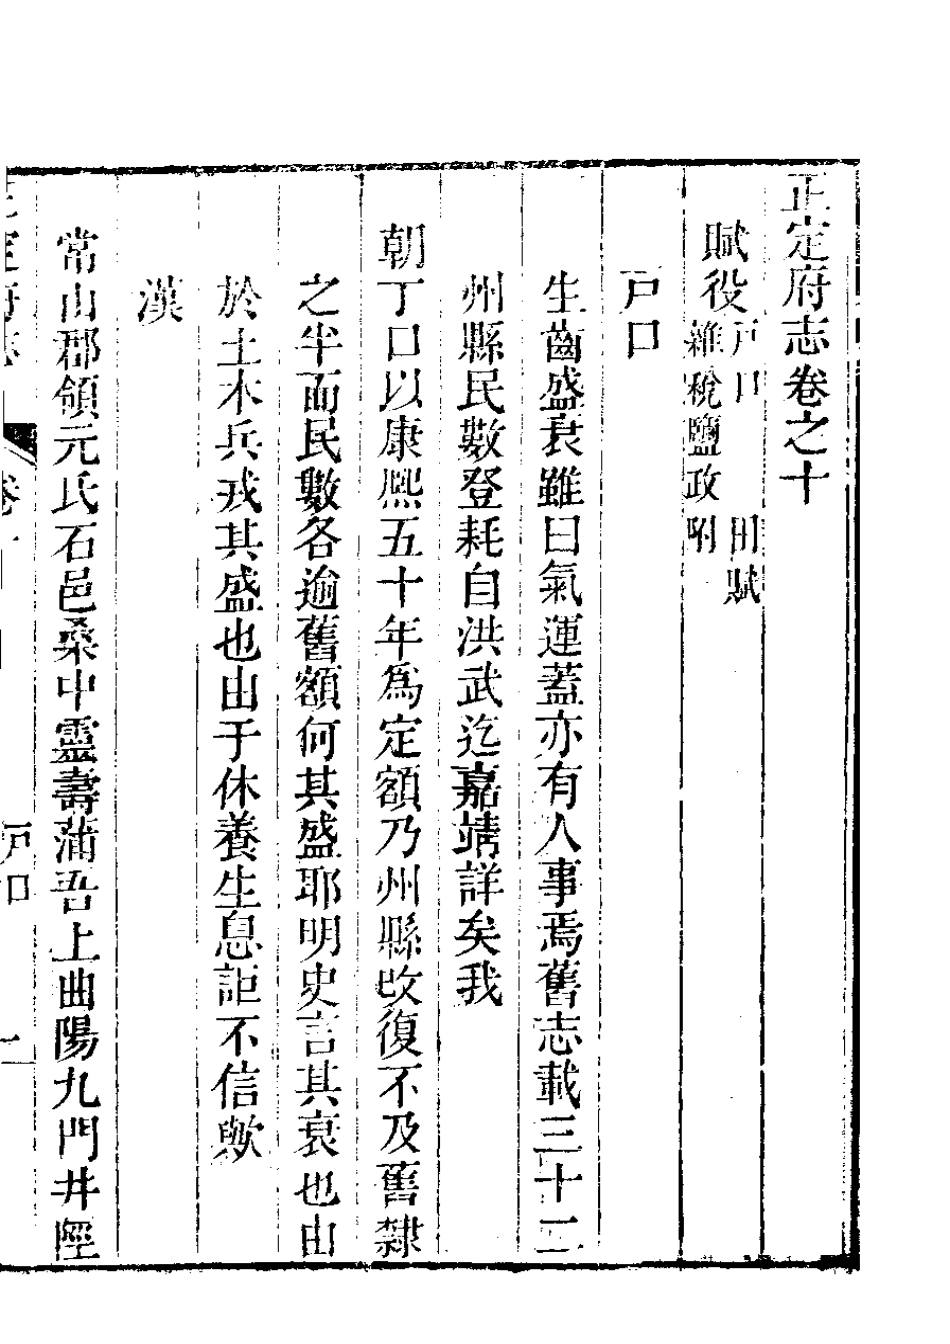 正定府志卷之十
賦役戶口 田賦
雜稅鹽政附
戶口
生齒盛衰雖曰氣運蓋亦有人事焉舊志載三十二
州縣民數登耗自洪武迄嘉靖詳矣我
朝丁口以康熙五十年爲定額乃州縣改復不及舊隸
之半而民數各逾舊額何其盛耶明史言其衰也由
於土木兵戎其盛也由于休養生息詎不信歟
漢
常山郡領元氏石邑桑中靈壽蒲吾上曲陽九門井陘
正定府志 卷十 戶口 一